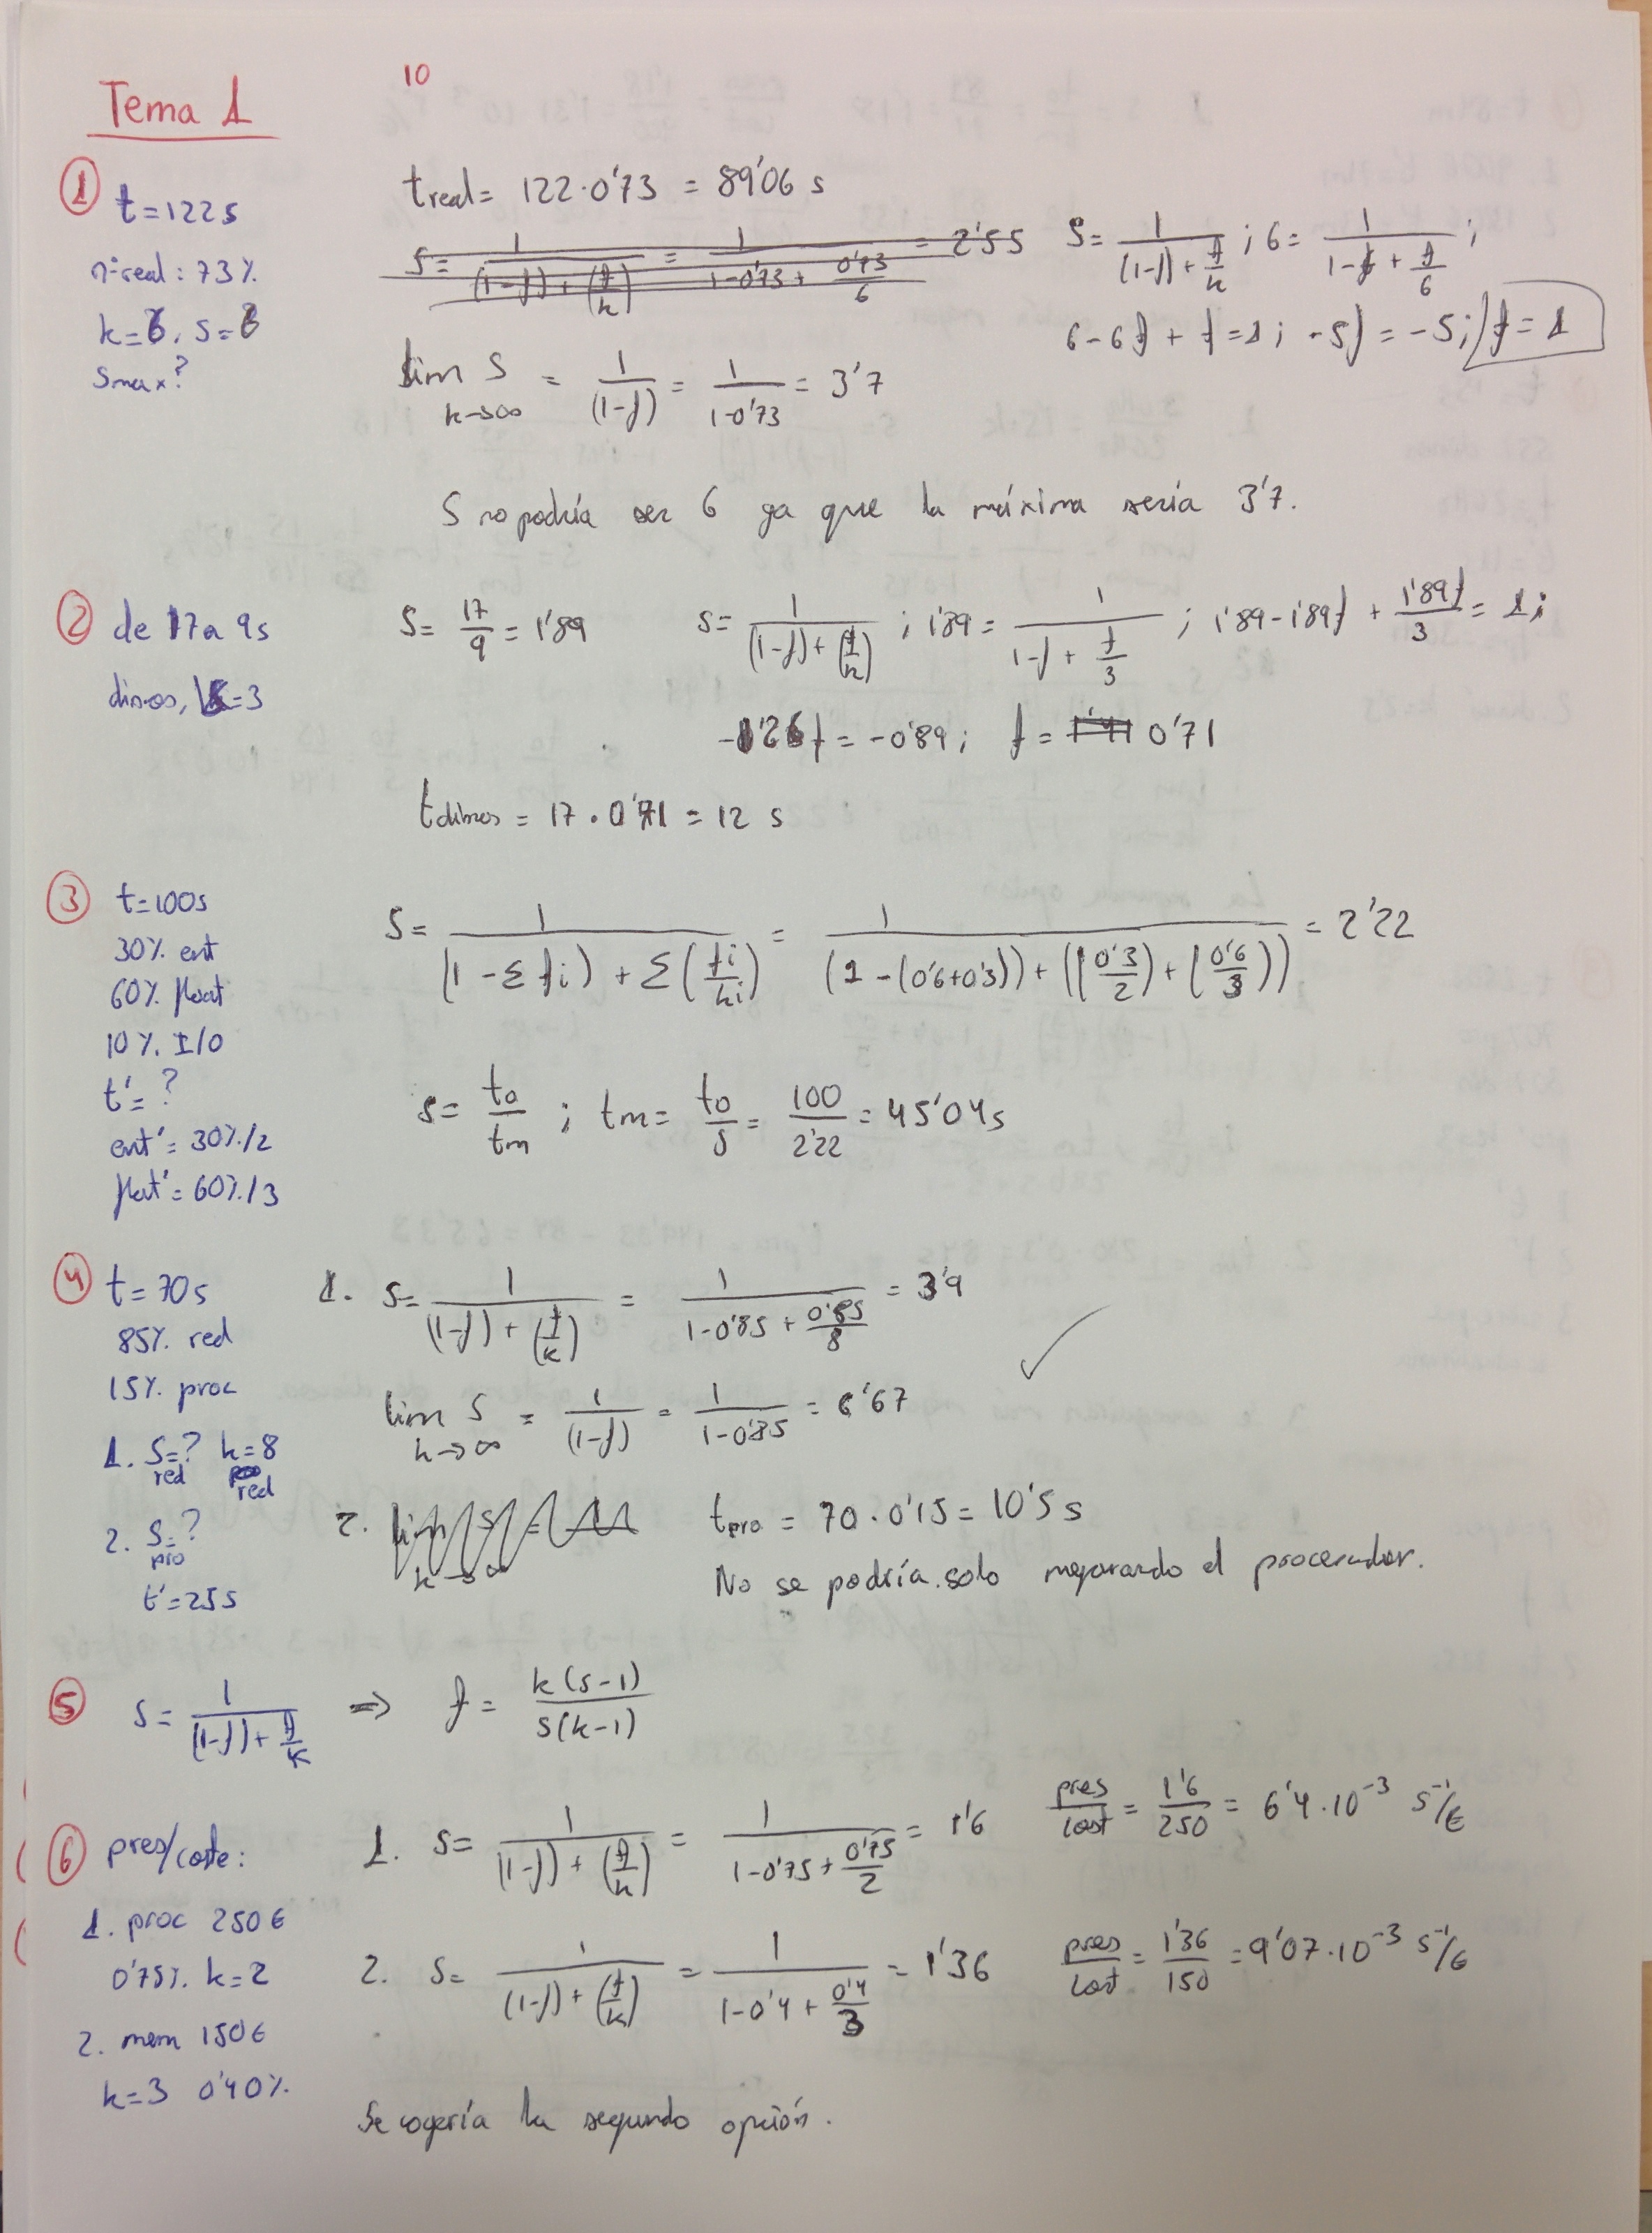 10
Tema 1
① t=122s
nº real: 73%
k=6, S=6
Smax?
treal = 122·0'73 = 89'06 s
S = 1/((1-f)+(f/k)) = 1/(1-0'73+0'73/6) = 2'55
S = 1/((1-f)+f/k) ; 6 = 1/(1-f+f/6) ;
6-6f+f=1; -5f=-5; f=1
lim S k→∞ = 1/(1-f) = 1/(1-0'73) = 3'7
S no podría ser 6 ya que la máxima sería 3'7.
② de 17 a 9s
discos, k=3
S = 17/9 = 1'89
S = 1/((1-f)+(f/k)) ; 1'89 = 1/(1-f+f/3) ; 1'89-1'89f + 1'89f/3 = 1;
-1'26f = -0'89; f = 0'71
tdiscos = 17·0'71 = 12 s
③ t=100s
30% ent
60% float
10% I/O
t'=?
ent'=30%/2
float'=60%/3
S = 1/((1-Σfi)+Σ(fi/ki)) = 1/((1-(0'6+0'3))+((0'3/2)+(0'6/3))) = 2'22
S = to/tm ; tm = to/S = 100/2'22 = 45'04s
④ t=70s
85% red
15% proc
1. S=? k=8
red red
2. S=?
pro
t'=25s
1. S = 1/((1-f)+(f/k)) = 1/(1-0'85+0'85/8) = 3'9
lim S k→∞ = 1/(1-f) = 1/(1-0'85) = 6'67
2. lim S = k→∞
tpro = 70·0'15 = 10'5 s
No se podría solo mejorando el procesador.
⑤ S = 1/((1-f)+f/k) ⇒ f = k(s-1)/s(k-1)
⑥ pres/coste:
1. proc 250€
0'75% k=2
2. mem 150€
k=3 0'40%
1. S = 1/((1-f)+(f/k)) = 1/(1-0'75+0'75/2) = 1'6
pres/cost = 1'6/250 = 6'4·10⁻³ s⁻¹/€
2. S = 1/((1-f)+(f/k)) = 1/(1-0'4+0'4/3) = 1'36
pres/cost = 1'36/150 = 9'07·10⁻³ s⁻¹/€
Se cogería la segundo opción.